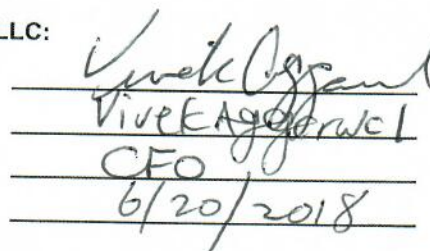 LLC:
Vivek Aggarwal
Vivek Aggarwal
CFO
6/20/2018